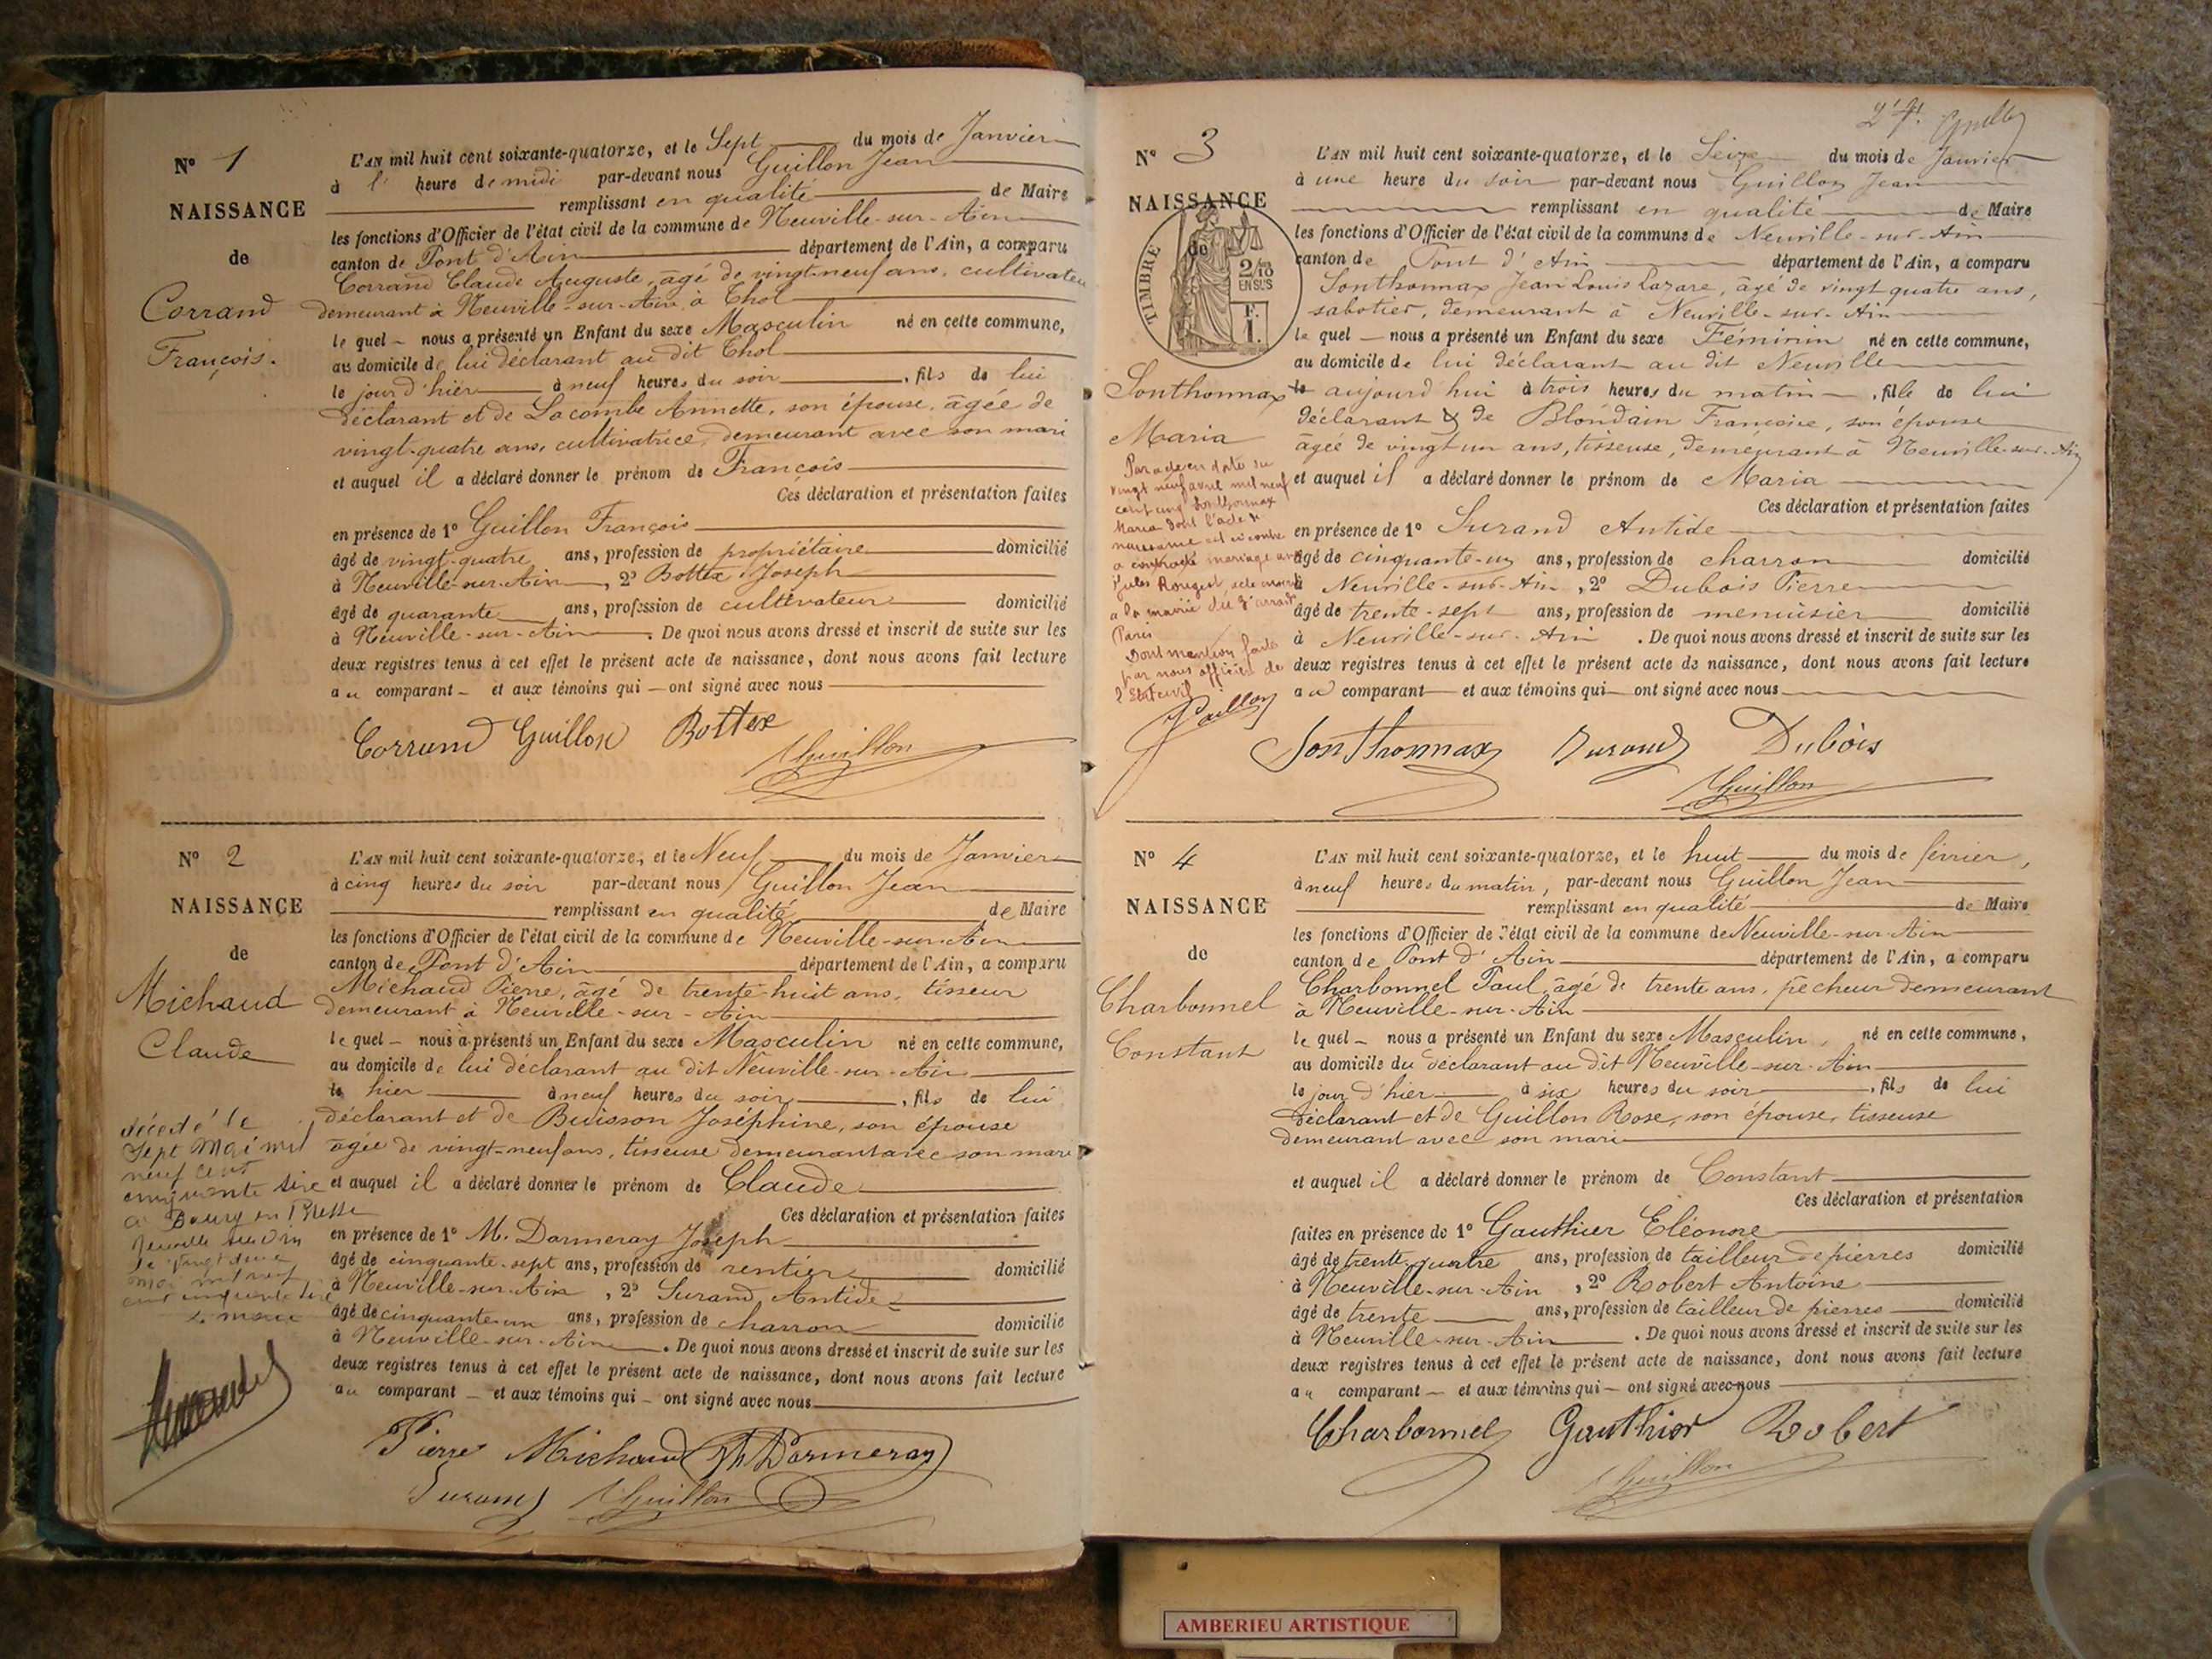 N° 1
NAISSANCE
de
Corrand
François.
L'AN mil huit cent soixante-quatorze, et le Sept du mois de Janvier
à l' heure de midi par-devant nous Guillon Jean
remplissant en qualité de Maire
les fonctions d'Officier de l'état civil de la commune de Neuville-sur-Ain
canton de Pont d'Ain département de l'Ain, a comparu
Corrand Claude Auguste, âgé de vingt-neuf ans, cultivateur
demeurant à Neuville-sur-Ain à Thol
lequel nous a présenté un Enfant du sexe Masculin né en cette commune,
au domicile de lui déclarant au dit Thol
le jour d'hier à neuf heures du soir, fils de lui
déclarant et de Lacombe Annette, son épouse, âgée de
vingt-quatre ans, cultivatrice, demeurant avec son mari
et auquel il a déclaré donner le prénom de François
Ces déclaration et présentation faites
en présence de 1° Guillon François
âgé de vingt-quatre ans, profession de propriétaire domicilié
à Neuville-sur-Ain, 2° Bottex Joseph
âgé de quarante ans, profession de cultivateur domicilié
à Neuville-sur-Ain. De quoi nous avons dressé et inscrit de suite sur les
deux registres tenus à cet effet le présent acte de naissance, dont nous avons fait lecture
au comparant et aux témoins qui ont signé avec nous
Corrand Guillon Bottex
Guillon
N° 2
NAISSANCE
de
Michaud
Claude
décédé le
sept Mai mil
neuf cent
cinquante
à Bourg en Bresse
Neuville sur Ain
L'AN mil huit cent soixante-quatorze, et le Neuf du mois de Janvier
à cinq heures du soir par-devant nous Guillon Jean
remplissant en qualité de Maire
les fonctions d'Officier de l'état civil de la commune de Neuville-sur-Ain
canton de Pont d'Ain département de l'Ain, a comparu
Michaud Pierre, âgé de trente-huit ans, tisseur
demeurant à Neuville-sur-Ain
lequel nous a présenté un Enfant du sexe Masculin né en cette commune,
au domicile de lui déclarant au dit Neuville-sur-Ain
le hier à neuf heures du soir, fils de lui
déclarant et de Buisson Joséphine, son épouse
âgée de vingt-neuf ans, tisseuse demeurant avec son mari
et auquel il a déclaré donner le prénom de Claude
Ces déclaration et présentation faites
en présence de 1° M. Darmeray Joseph
âgé de cinquante-sept ans, profession de rentier domicilié
à Neuville-sur-Ain, 2° Surand Antide
âgé de cinquante-un ans, profession de charron domicilié
à Neuville-sur-Ain. De quoi nous avons dressé et inscrit de suite sur les
deux registres tenus à cet effet le présent acte de naissance, dont nous avons fait lecture
au comparant et aux témoins qui ont signé avec nous
Pierre Michaud Darmeray
Surand Guillon
N° 3
NAISSANCE
de
TIMBRE
2/10
EN SUS
F.
1.
Sonthonnax
Maria
Par acte en date du
vingt neuf avril mil neuf
cent cinq Sonthonnax
Maria dont l'acte de
naissance est ci contre
a contracté mariage avec
Jules Rouget
à la mairie du 3e arrondt
Paris
Dont mention faite
par nous officier de
l'Etat civil
L'AN mil huit cent soixante-quatorze, et le Seize du mois de Janvier
à une heure du soir par-devant nous Guillon Jean
remplissant en qualité de Maire
les fonctions d'Officier de l'état civil de la commune de Neuville-sur-Ain
canton de Pont d'Ain département de l'Ain, a comparu
Sonthonnax Jean Louis Lazare, âgé de vingt quatre ans,
sabotier, demeurant à Neuville-sur-Ain
lequel nous a présenté un Enfant du sexe Féminin né en cette commune,
au domicile de lui déclarant au dit Neuville
le aujourd'hui à trois heures du matin, fille de lui
déclarant & de Blondain Françoise, son épouse
âgée de vingt un ans, tisseuse, demeurant à Neuville-sur-Ain
et auquel il a déclaré donner le prénom de Maria
Ces déclaration et présentation faites
en présence de 1° Surand Antide
âgé de cinquante-un ans, profession de charron domicilié
à Neuville-sur-Ain, 2° Dubois Pierre
âgé de trente-sept ans, profession de menuisier domicilié
à Neuville-sur-Ain. De quoi nous avons dressé et inscrit de suite sur les
deux registres tenus à cet effet le présent acte de naissance, dont nous avons fait lecture
au comparant et aux témoins qui ont signé avec nous
Sonthonnax Surand Dubois
Guillon
N° 4
NAISSANCE
de
Charbonnel
Constant
L'AN mil huit cent soixante-quatorze, et le huit du mois de février,
à neuf heures du matin, par-devant nous Guillon Jean
remplissant en qualité de Maire
les fonctions d'Officier de l'état civil de la commune de Neuville-sur-Ain
canton de Pont d'Ain département de l'Ain, a comparu
Charbonnel Paul, âgé de trente ans, pêcheur demeurant
à Neuville-sur-Ain
lequel nous a présenté un Enfant du sexe Masculin, né en cette commune,
au domicile du déclarant au dit Neuville-sur-Ain
le jour d'hier à six heures du soir, fils de lui
déclarant et de Guillon Rose, son épouse, tisseuse
demeurant avec son mari
et auquel il a déclaré donner le prénom de Constant
Ces déclaration et présentation
faites en présence de 1° Gauthier Eléonore
âgé de trente-quatre ans, profession de tailleur de pierres domicilié
à Neuville-sur-Ain, 2° Robert Antoine
âgé de trente ans, profession de tailleur de pierres domicilié
à Neuville-sur-Ain. De quoi nous avons dressé et inscrit de suite sur les
deux registres tenus à cet effet le présent acte de naissance, dont nous avons fait lecture
au comparant et aux témoins qui ont signé avec nous
Charbonnel Gauthier Robert
Guillon
AMBERIEU ARTISTIQUE